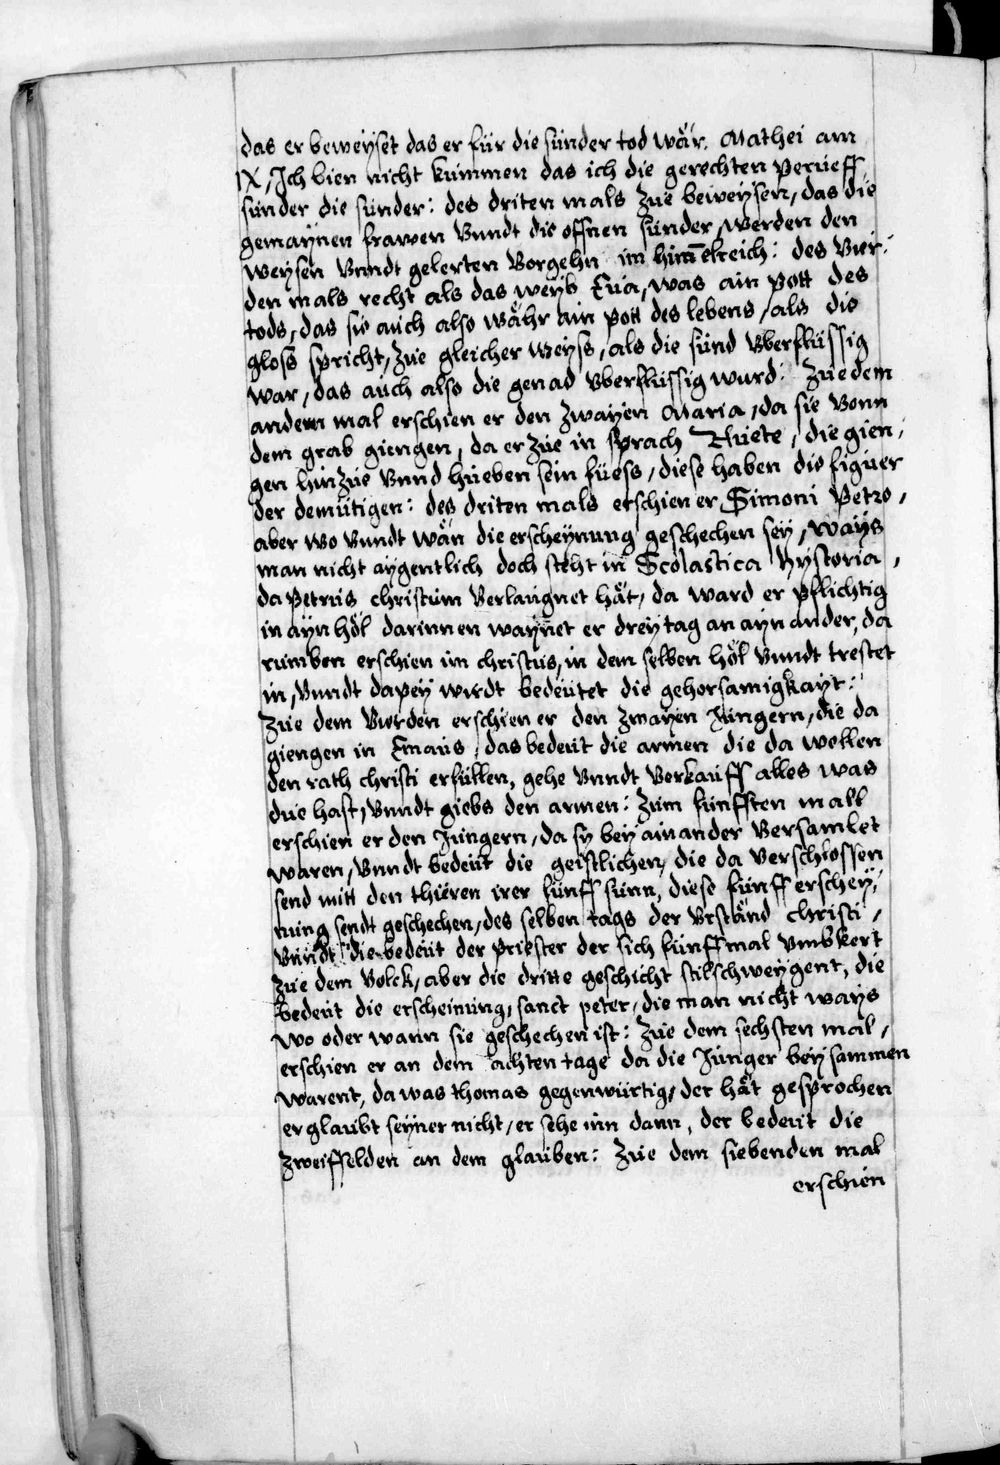 das er beweyset das er für die sünder tod wär. Mathei am
IX, Ich bien nicht kummen das ich die gerechten Perueff
sünder die sünder: des driten mals Zue beweysen, das die
gemaynen frawen Vnndt die offnen sünder, werden den
weysen Vnndt gelerten Vorgehn im himelreich: des Vier-
den mals recht als das weyb Eua, was ain Pott des
tods, das sie auch also währ ain Pott des lebens, als die
gloss spricht, Zue gleicher weyss, als die sünd Vberflüssig
war, das auch also die genad Vberflüssig wurd: Zue dem
andern mal erschien er den Zwayen Maria, da sie Vonn
dem grab giengen, da er Zue in sprach Auete, die gien-
gen hinZue Vnnd hueben sein füess, diese haben die figuer
der demütigen: des driten mals erschien er Simoni Petro,
aber wo Vundt wän die erscheynung geschechen sey, ways
man nicht aygentlich doch steht in Scolastica hystoria,
da Petrus christum Verlaugnet hät, da ward er Pflichtig
in ayn höl darinnen waynet er drey tag an ayn ander, da
rumben erschien im christus, in dem selben höl Vnndt trestet
in, Vnndt dapey wirdt bedeütet die gehorsamigkayt:
Zue dem Vierden erschien er den Zwayen Jüngern, die da
giengen in Emaus, das bedeut die armen die da wollen
den rath christi erfüllen, gehe Vnndt Verkauff alles was
due hast, Vnndt giebs den armen: Zum fünfften mall
erschien er den Jüngern, da sy bey ainander Versamlet
waren, Vnndt bedeüt die geistlichen, die da Verschlossen
send mitt den thüren irer fünff sünn, diese fünff erschey-
nung sendt geschechen, des selben tags der Vrständ christi,
Vnndt die bedeut der Priester der sich fünffmal Vmbkert
Zue dem Volck, aber die dritte geschicht stilschweygent, die
bedeüt die erscheinung, sanct peter, die man nicht ways
wo oder wann sie geschechen ist: Zue dem sechsten mal,
erschien er an dem achten tage da die Jünger bey sammen
warent, da was thomas gegenwürtig, der hät gesprochen
er glaubt seyner nicht, er sehe inn dann, der bedeüt die
Zweiffelden an dem glauben: Zue dem siebenden mal
erschien